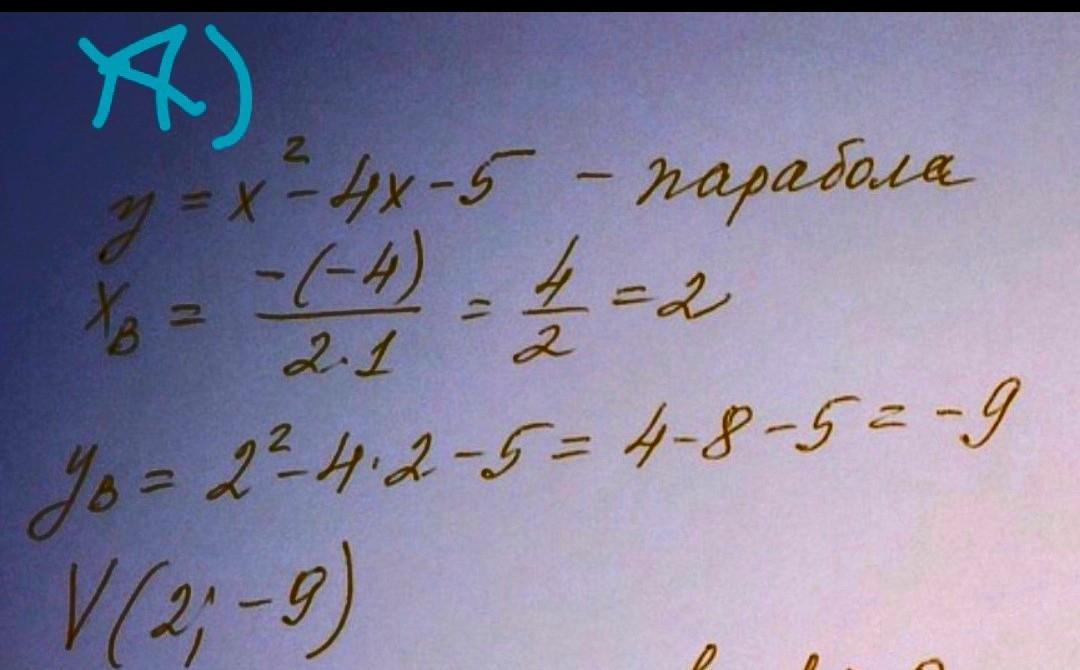 А)
y = x² - 4x - 5 - парабола
x_в = -(-4) / 2·1 = 4/2 = 2
y_в = 2² - 4·2 - 5 = 4 - 8 - 5 = -9
V(2; -9)